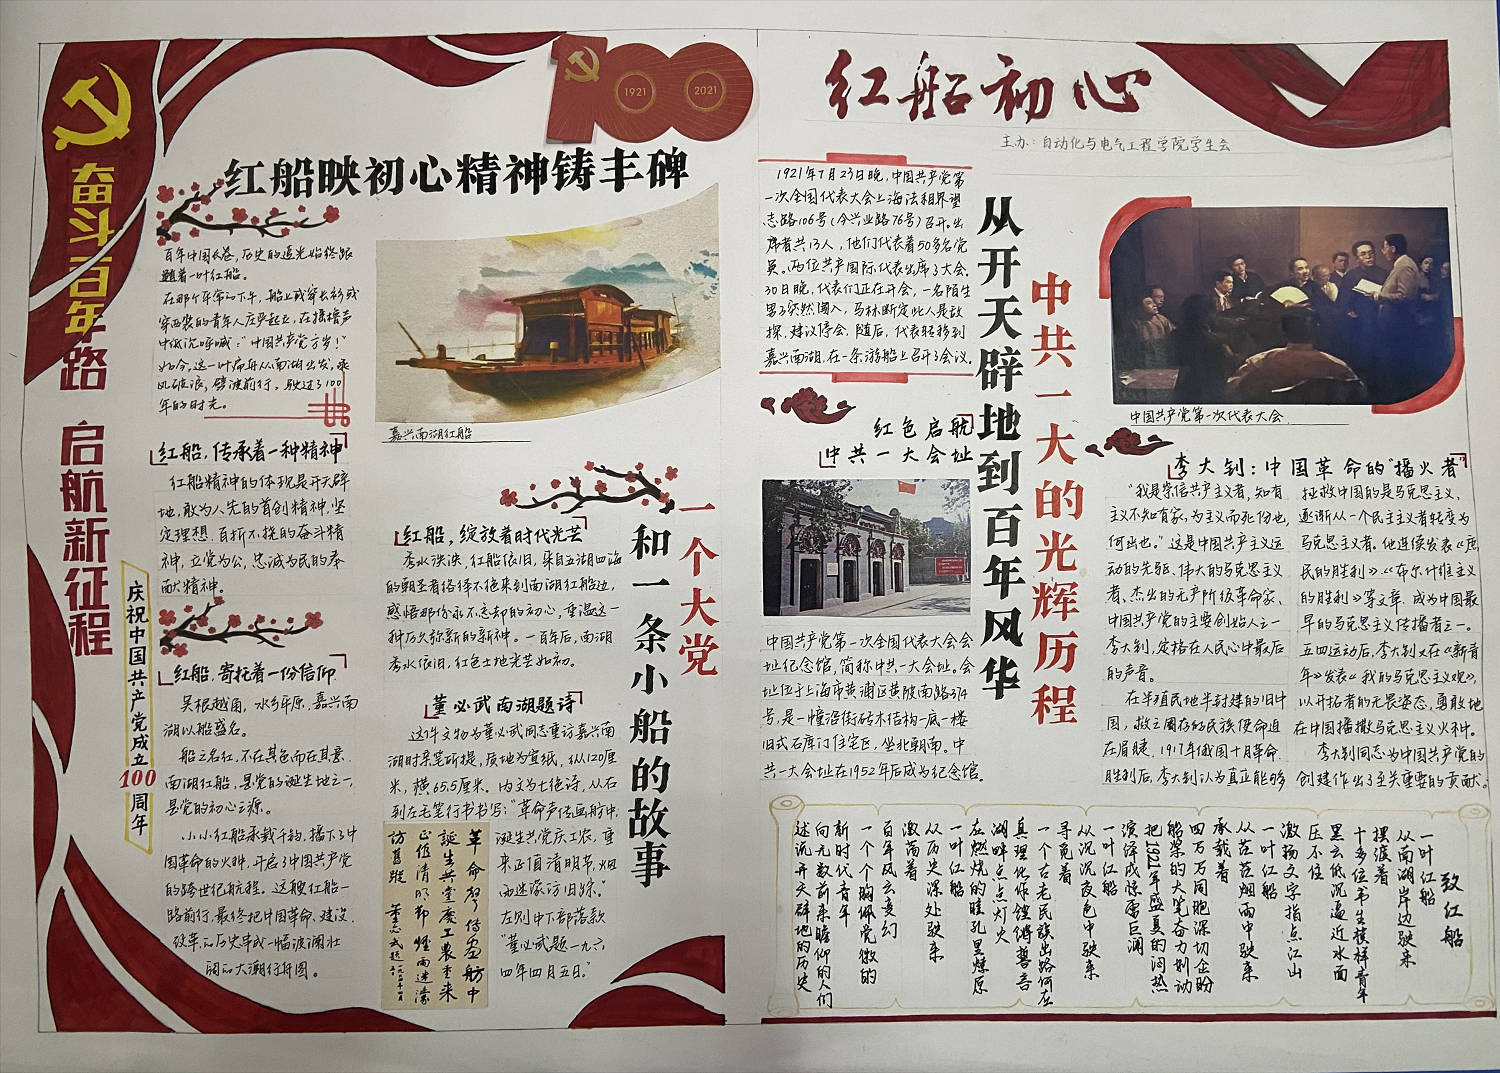 奋斗百年路 启航新征程
庆祝中国共产党成立100周年
100
1921
2021
红船映初心精神铸丰碑
百年中国长卷,历史的追光始终跟
随着一叶红船。
穿西装的青年人庄严起立,在摇橹声
中低沉呼喊:“中国共产党万岁!”
如今,这一叶扁舟从南湖出发,乘
风破浪,劈波前行,驶过了100
年的时光。
嘉兴南湖红船
红船,传承着一种精神
红船精神的体现是开天辟
地,敢为人先的首创精神,坚
定理想、百折不挠的奋斗精
神,立党为公,忠诚为民的奉
献精神。
红船,寄托着一份信仰
吴根越角,水乡平原,嘉兴南
湖以船盛名。
船之名红,不在其色而在其意.
南湖红船,是党的诞生地之一,
是党的初心之源。
小小红船承载千钧,播下了中
国革命的火种,开启了中国共产党
的跨世纪航程。这艘红船一
路前行.最终把中国革命、建设、
改革的历史串成一幅波澜壮
阔的大潮行舟图。
红船,绽放着时代光芒
秀水泱泱,红船依旧,来自五湖四海
的朝圣者络绎不绝来到南湖红船边,
感悟那份永不忘却的初心,重温这一
种历久弥新的新神。一百年后,南湖
秀水依旧,红色土地光芒如初。
董必武南湖题诗
这件文物为董必武同志重访嘉兴南
湖时亲笔所提,质地为宣纸,纵120厘
米,横65.5厘米。内文为七绝诗,从右
到左毛笔行书书写:“革命声传画舫中,
诞生共党庆工农,重
来正值清明节,烟
雨迷濛访旧踪.”
左侧中下部落款
“董必武题一九六
四年四月五日。”
革命声传画舫中
诞生共党庆工农重来
正值清明节烟雨迷濛
访旧踪 董必武题
一个大党
和一条小船的故事
红船初心
主办:自动化与电气工程学院学生会
1921年7月23日晚,中国共产党第
一次全国代表大会上海法租界望
志路106号(今兴业路76号)召开.出
席者共13人,他们代表着50多名党
员。两位共产国际代表出席了大会.
30日晚,代表们正在开会,一名陌生
男子突然闯入,马林断定此人是敌
探,建议停会.随后,代表转移到
嘉兴南湖,在一条游船上召开了会议.
从开天辟地到百年风华
中共一大的光辉历程
中国共产党第一次代表大会
红色启航
中共一大会址
中国共产党第一次全国代表大会会
址纪念馆,简称中共一大会址。会
址位于上海市黄浦区黄陂南路374
号,是一幢沿街砖木结构一底一楼
旧式石库门住宅区,坐北朝南。中
共一大会址在1952年后成为纪念馆.
李大钊:中国革命的“播火者”
“我是崇信共产主义者,知有
主义不知有家,为主义而死份也,
何出也。”这是中国共产主义运
动的先驱、伟大的马克思主义
者、杰出的无产阶级革命家、
中国共产党的主要创始人之一
李大钊,定格在人民心中最后
的声音。
在半殖民地半封建的旧中
国,救亡图存的民族使命迫
在眉睫.1917年俄国十月革命
胜利后,李大钊认为真正能够
拯救中国的是马克思主义,
逐渐从一个民主主义者转变为
马克思主义者.他连续发表《庶
民的胜利》.《布尔什维主义
的胜利》等文章.成为中国最
早的马克思主义传播者之一。
五四运动后,李大钊又在《新青
年》发表《我的马克思主义观》,
以开拓者的无畏姿态,勇敢地
在中国播撒马克思主义火种。
李大钊同志为中国共产党的
创建作出了至关重要的贡献。
致红船
一叶红船
从南湖岸边驶来
摆渡着
十多位书生模样青年
黑云低沉逼近水面
压不住
激扬文字指点江山
一叶红船
从茫茫烟雨中驶来
承载着
四万万同胞深切企盼
船桨的大笔奋力划动
把1921年盛夏的闷热
演绎成惊雷巨澜
一叶红船
从沉沉夜色中驶来
寻觅着
一个古老民族出路何在
真理化作铿锵誓言
湖畔点点灯火
在燃烧的瞳孔里燎原
一叶红船
从历史深处驶来
激荡着
百年风云变幻
一个个胸佩党徽的
新时代青年
向无数前来瞻仰的人们
述说开天辟地的历史